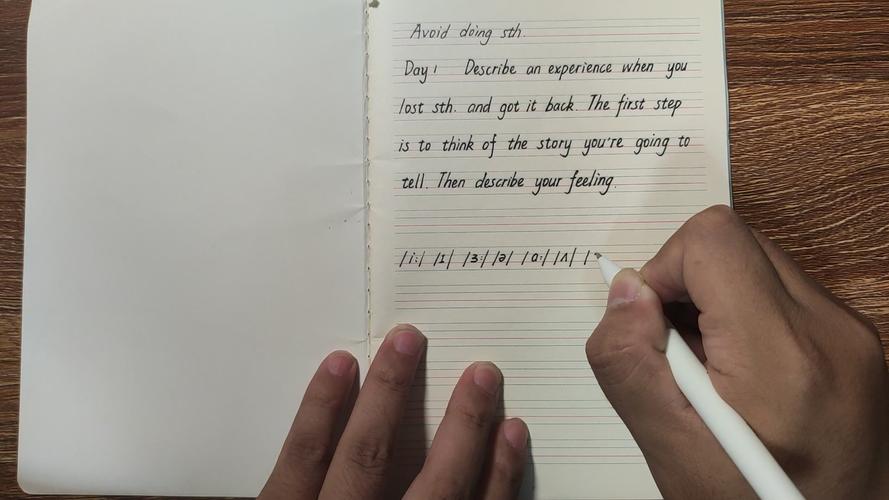 Avoid doing sth.
Day 1 Describe an experience when you
lost sth. and got it back. The first step
is to think of the story you're going to
tell. Then describe your feeling.
/i:/ /ɪ/ /ɜ:/ /ə/ /ɑ:/ /ʌ/ /